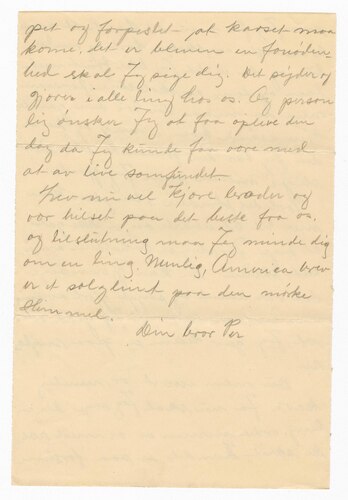 pet og forpestet at kaoset maa
kome, det er bleven en fonøden-
hed skal Jeg sige dig. Det syder og
gjærer i alle ting hos os. Og person
lig ønsker Jeg at faa opleve den
dag da Jeg kunde faa være med
at av live somfundet.
Lev nu vel kjære broder og
vær hilset paa det beste fra os,
og til slutning maa Jeg minde dig
om en ting. Nemlig, America brev
er et solglimt paa den mørke
Himmel.
Din bror Per